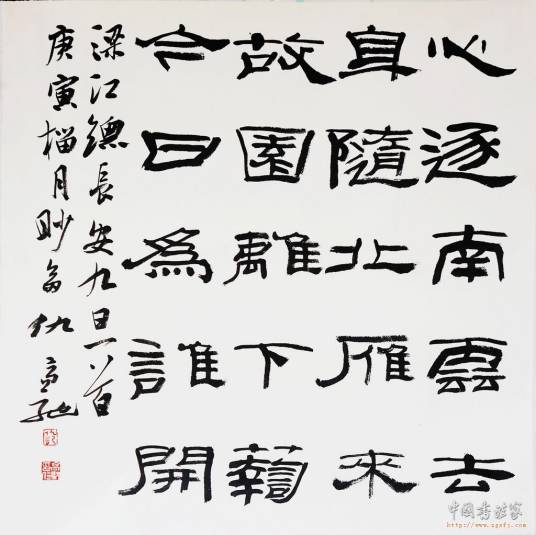 心逐南雲去
身隨北雁來
故園離下蘜
今日為誰開
梁江總長安九日一首
庚寅榴月眇翁仇高馳
中國書法家
http://www.zgsfj.com